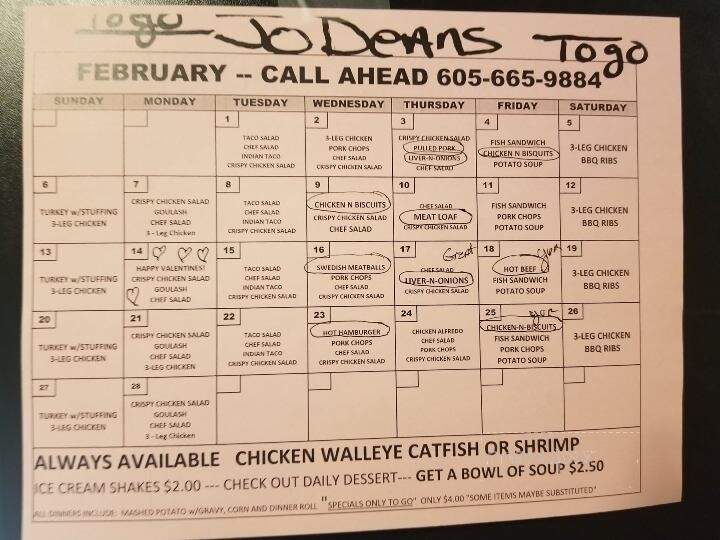 Togo JoDeAns Togo
FEBRUARY -- CALL AHEAD 605-665-9884
SUNDAY MONDAY TUESDAY WEDNESDAY THURSDAY FRIDAY SATURDAY
1
TACO SALAD
CHEF SALAD
INDIAN TACO
CRISPY CHICKEN SALAD
2
3-LEG CHICKEN
PORK CHOPS
CHEF SALAD
CRISPY CHICKEN SALAD
3
CRISPY CHICKEN SALAD
PULLED PORK
LIVER-N-ONIONS
CHEF SALAD
4
FISH SANDWICH
CHICKEN N BISQUITS
POTATO SOUP
5
3-LEG CHICKEN
BBQ RIBS
6
TURKEY w/STUFFING
3-LEG CHICKEN
7
CRISPY CHICKEN SALAD
GOULASH
CHEF SALAD
3 - Leg Chicken
8
TACO SALAD
CHEF SALAD
INDIAN TACO
CRISPY CHICKEN SALAD
9
CHICKEN N BISCUITS
CRISPY CHICKEN SALAD
CHEF SALAD
10
CHEF SALAD
MEAT LOAF
CRISPY CHICKEN SALAD
11
FISH SANDWICH
PORK CHOPS
POTATO SOUP
12
3-LEG CHICKEN
BBQ RIBS
13
TURKEY w/STUFFING
3-LEG CHICKEN
14
HAPPY VALENTINES!
CRISPY CHICKEN SALAD
GOULASH
CHEF SALAD
15
TACO SALAD
CHEF SALAD
INDIAN TACO
CRISPY CHICKEN SALAD
16
SWEDISH MEATBALLS
PORK CHOPS
CHEF SALAD
CRISPY CHICKEN SALAD
17
Great
CHEF SALAD
LIVER-N-ONIONS
CRISPY CHICKEN SALAD
18
HOT BEEF
FISH SANDWICH
POTATO SOUP
19
3-LEG CHICKEN
BBQ RIBS
20
TURKEY w/STUFFING
3-LEG CHICKEN
21
CRISPY CHICKEN SALAD
GOULASH
CHEF SALAD
3 - Leg Chicken
22
TACO SALAD
CHEF SALAD
INDIAN TACO
CRISPY CHICKEN SALAD
23
HOT HAMBURGER
PORK CHOPS
CHEF SALAD
CRISPY CHICKEN SALAD
24
CHICKEN ALFREDO
CHEF SALAD
PORK CHOPS
CRISPY CHICKEN SALAD
25
CHICKEN-N-BISCUITS
FISH SANDWICH
PORK CHOPS
POTATO SOUP
26
3-LEG CHICKEN
BBQ RIBS
27
TURKEY w/STUFFING
3-LEG CHICKEN
28
CRISPY CHICKEN SALAD
GOULASH
CHEF SALAD
3 - Leg Chicken
ALWAYS AVAILABLE CHICKEN WALLEYE CATFISH OR SHRIMP
ICE CREAM SHAKES $2.00 --- CHECK OUT DAILY DESSERT--- GET A BOWL OF SOUP $2.50
ALL DINNERS INCLUDE: MASHED POTATO w/GRAVY, CORN AND DINNER ROLL "SPECIALS ONLY TO GO" ONLY $4.00 "SOME ITEMS MAYBE SUBSTITUTED"